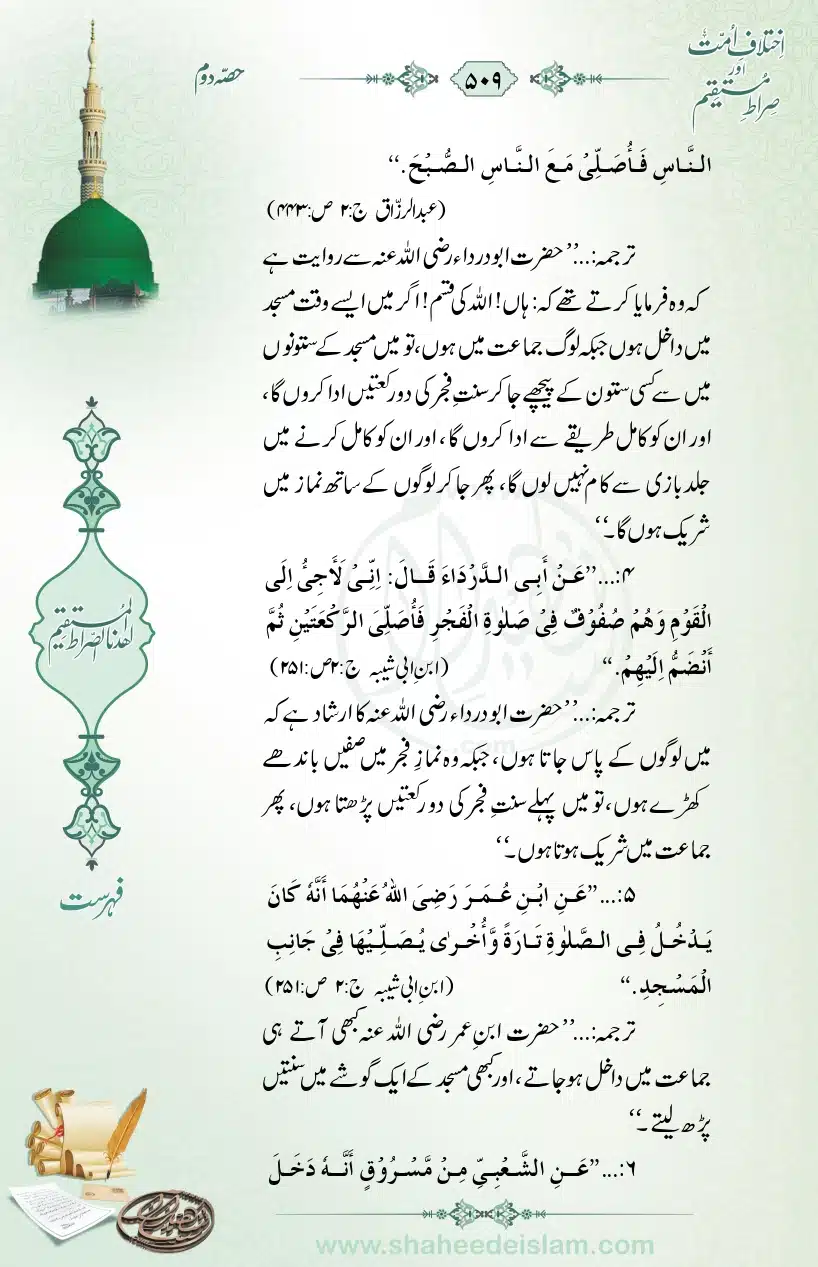 اِختلافِ اُمّت
اور
صِراطِ مُستقیم
۵۰۹
حصّہ دوم
النَّاسِ فَأُصَلِّیْ مَعَ النَّاسِ الصُّبْحَ.‘‘
(عبدالرزّاق ج:۲ ص:۴۴۳)
ترجمہ:...’’حضرت ابودرداء رضی اللہ عنہ سے روایت ہے
کہ وہ فرمایا کرتے تھے کہ: ہاں! اللہ کی قسم! اگر میں ایسے وقت مسجد
میں داخل ہوں جبکہ لوگ جماعت میں ہوں، تو میں مسجد کے ستونوں
میں سے کسی ستون کے پیچھے جاکر سنتِ فجر کی دو رکعتیں ادا کروں گا،
اور ان کو کامل طریقے سے ادا کروں گا، اور ان کو کامل کرنے میں
جلدبازی سے کام نہیں لوں گا، پھر جاکر لوگوں کے ساتھ نماز میں
شریک ہوں گا۔‘‘
۴:...’’عَنْ أَبِی الدَّرْدَاءَ قَالَ: اِنِّیْ لَأَجِیُٔ اِلَی
الْقَوْمِ وَھُمْ صُفُوْفٌ فِیْ صَلٰوۃِ الْفَجْرِ فَأُصَلِّیَ الرَّکْعَتَیْنِ ثُمَّ
أَنْضَمُّ اِلَیْھِمْ.‘‘ (ابنِ ابی شیبہ ج:۲ ص:۲۵۱)
ترجمہ:...’’حضرت ابودرداء رضی اللہ عنہ کا ارشاد ہے کہ
میں لوگوں کے پاس جاتا ہوں، جبکہ وہ نمازِ فجر میں صفیں باندھے
کھڑے ہوں، تو میں پہلے سنتِ فجر کی دو رکعتیں پڑھتا ہوں، پھر
جماعت میں شریک ہوتا ہوں۔‘‘
اھدنا الصراط المستقیم
۵:...’’عَنِ ابْنِ عُمَرَ رَضِیَ اللہُ عَنْھُمَا أَنَّہٗ کَانَ
یَدْخُلُ فِی الصَّلٰوۃِ تَارَۃً وَّأُخْرٰی یُصَلِّیْھَا فِیْ جَانِبِ
الْمَسْجِدِ.‘‘ (ابنِ ابی شیبہ ج:۲ ص:۲۵۱)
فہرست
ترجمہ:...’’حضرت ابنِ عمر رضی اللہ عنہ کبھی آتے ہی
جماعت میں داخل ہوجاتے، اور کبھی مسجد کے ایک گوشے میں سنتیں
پڑھ لیتے۔‘‘
۶:...’’عَنِ الشَّعْبِیِّ مِنْ مَّسْرُوْقٍ أَنَّہٗ دَخَلَ
www.shaheedeislam.com